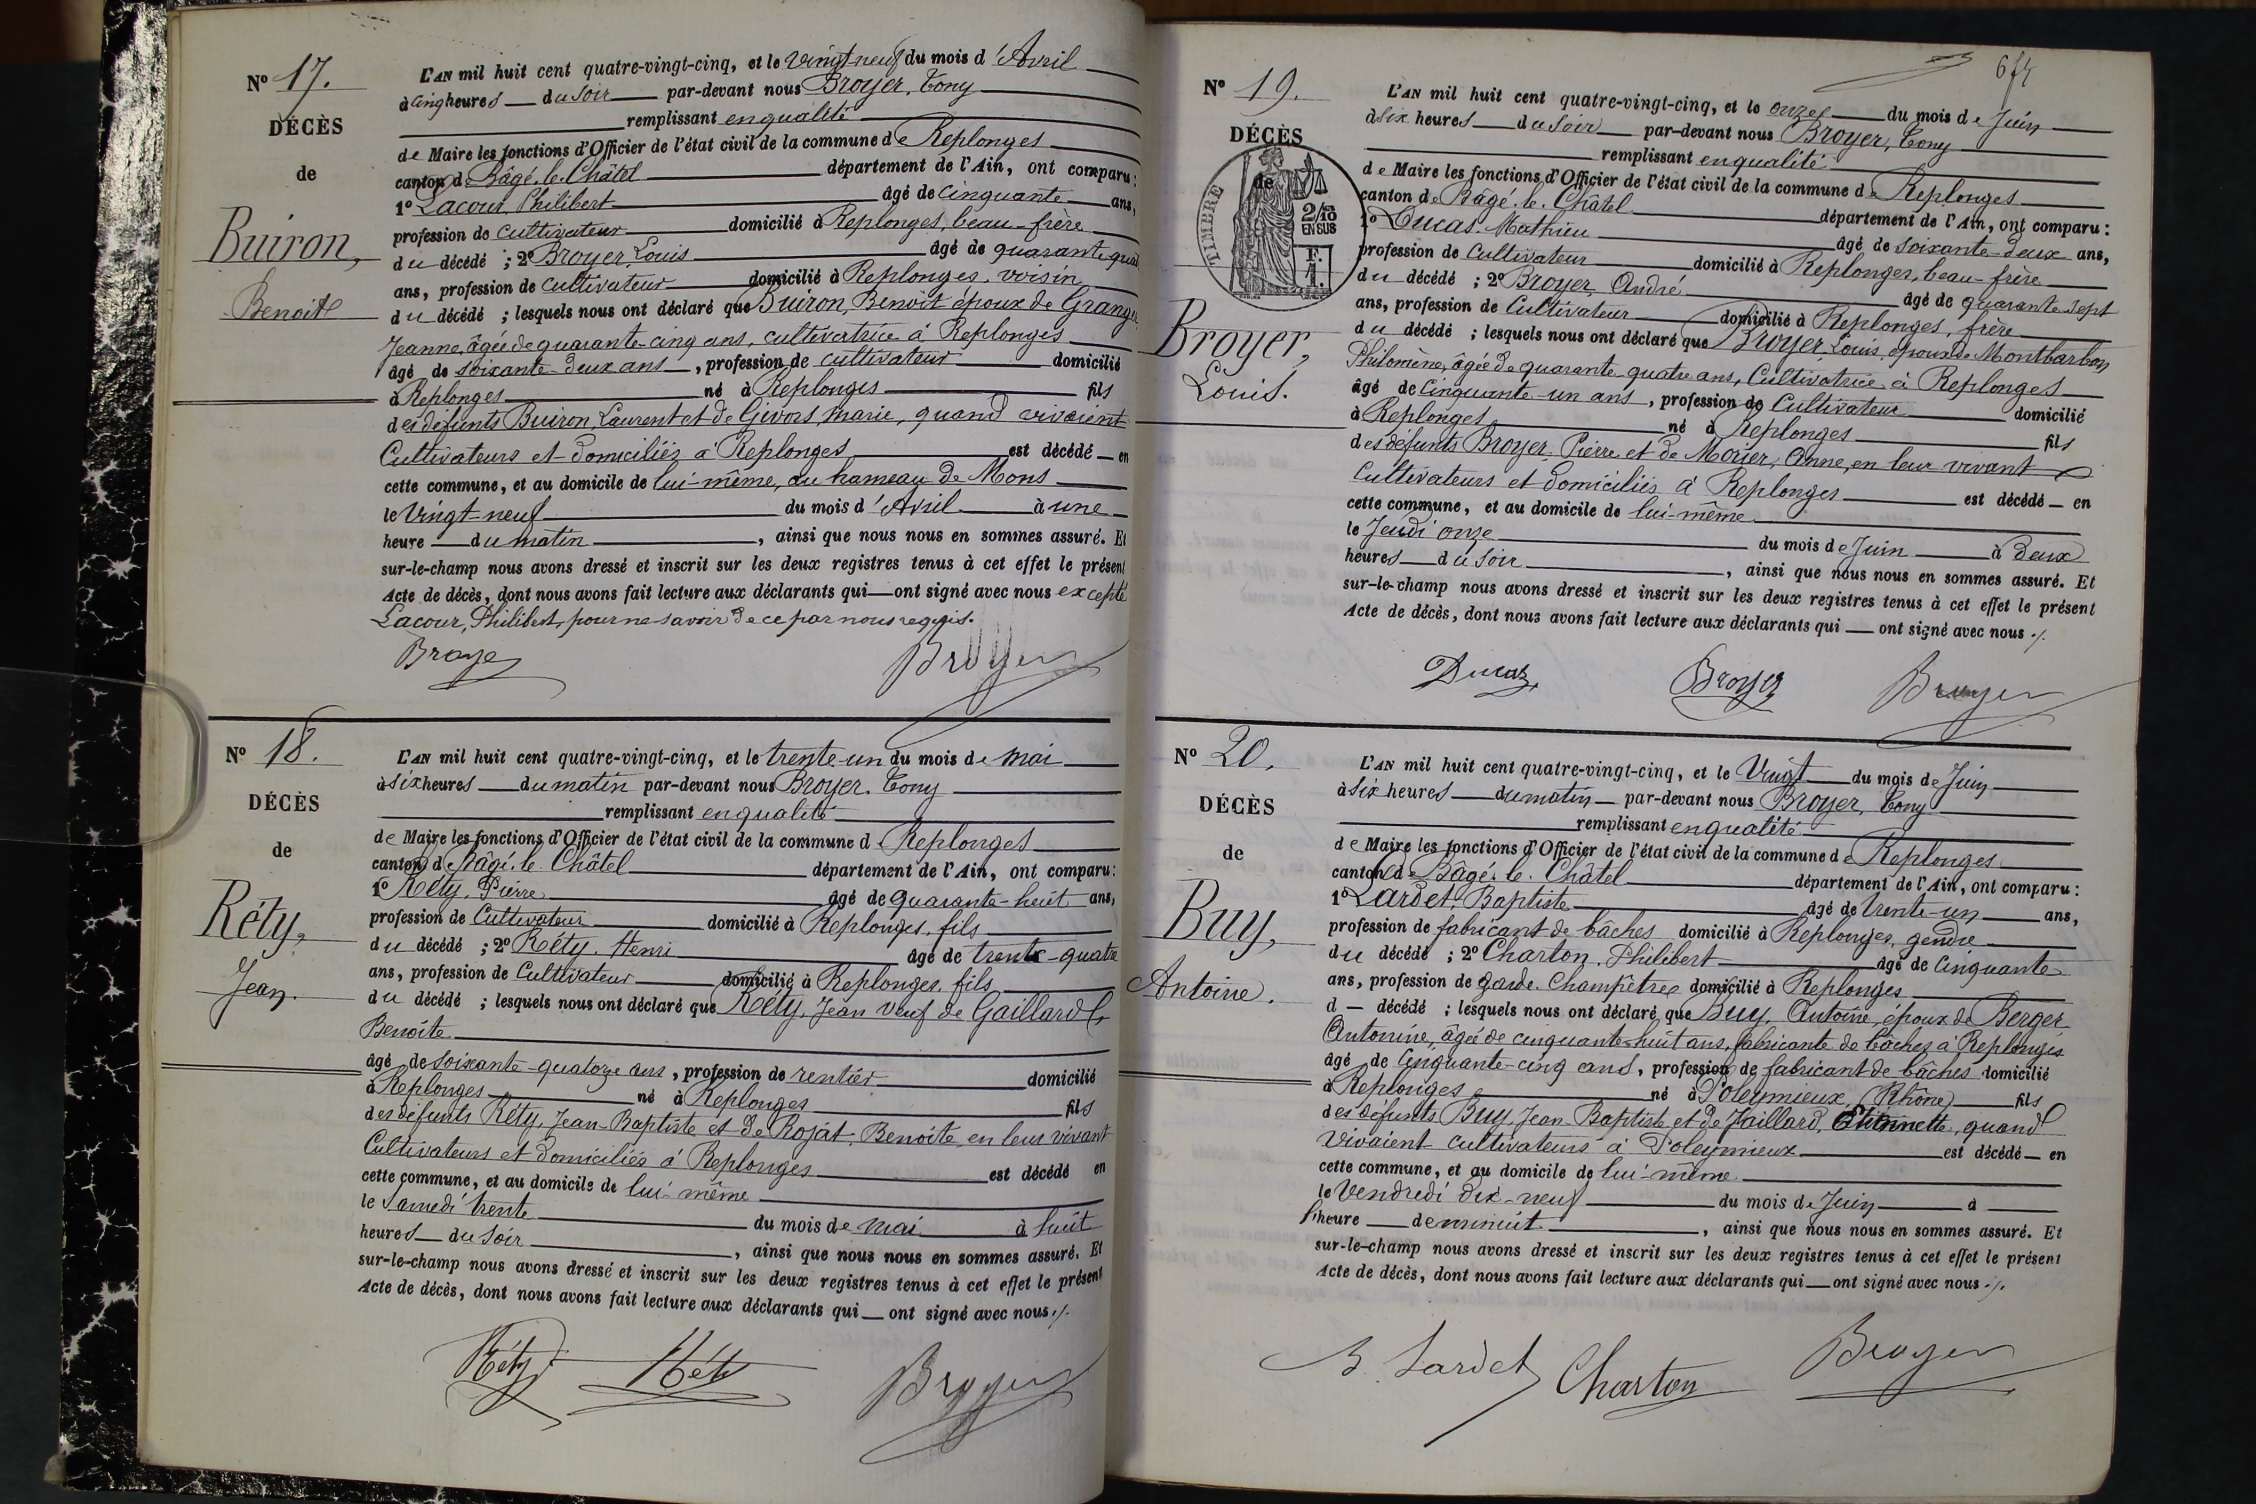 Nº 17.
DÉCÈS
de
Buiron,
Benoit
L'AN mil huit cent quatre-vingt-cinq, et le vingt neuf du mois d'Avril
à cinq heures du soir par-devant nous Broyer, Tony
remplissant en qualité
de Maire les fonctions d'Officier de l'état civil de la commune de Replonges
canton de Bâgé-le-Châtel département de l'Ain, ont comparu :
1º Lacour, Philibert âgé de cinquante ans,
profession de cultivateur domicilié à Replonges, beau-frère
du décédé ; 2º Broyer, Louis âgé de quarante quat
ans, profession de cultivateur domicilié à Replonges, voisin
du décédé ; lesquels nous ont déclaré que Buiron, Benoit époux de Grang
Jeanne, âgée de quarante-cinq ans, cultivatrice à Replonges
âgé de soixante-deux ans, profession de cultivateur domicilié
à Replonges né à Replonges fils
des défunts Buiron, Laurent et de Givors, Marie, quand vivaient
Cultivateurs et domiciliés à Replonges est décédé en
cette commune, et au domicile de lui-même, au hameau de Mons
le Vingt-neuf du mois d'Avril à une
heure du matin, ainsi que nous nous en sommes assuré. Et
sur-le-champ nous avons dressé et inscrit sur les deux registres tenus à cet effet le présent
Acte de décès, dont nous avons fait lecture aux déclarants qui ont signé avec nous excepté
Lacour, Philibert, pour ne savoir de ce par nous requis.
Broye Broyer
Nº 18.
DÉCÈS
de
Réty,
Jean.
L'AN mil huit cent quatre-vingt-cinq, et le trente-un du mois de mai
à six heures du matin par-devant nous Broyer, Tony
remplissant en qualité
de Maire les fonctions d'Officier de l'état civil de la commune de Replonges
canton de Bâgé-le-Châtel département de l'Ain, ont comparu :
1º Réty, Pierre âgé de quarante-huit ans,
profession de Cultivateur domicilié à Replonges, fils
du décédé ; 2º Réty, Henri âgé de trente-quatre
ans, profession de Cultivateur domicilié à Replonges, fils
du décédé ; lesquels nous ont déclaré que Réty, Jean veuf de Gaillard
Benoite
âgé de soixante-quatorze ans, profession de rentier domicilié
à Replonges né à Replonges fils
des défunts Réty, Jean-Baptiste et de Rojat, Benoite en leur vivant
Cultivateurs et domiciliés à Replonges est décédé en
cette commune, et au domicile de lui-même
le Samedi trente du mois de mai à huit
heures du soir, ainsi que nous nous en sommes assuré. Et
sur-le-champ nous avons dressé et inscrit sur les deux registres tenus à cet effet le présent
Acte de décès, dont nous avons fait lecture aux déclarants qui ont signé avec nous ./.
Réty Réty Broyer
674
Nº 19.
DÉCÈS
de
TIMBRE
2/10
EN SUS
F.
1.
Broyer,
Louis.
L'AN mil huit cent quatre-vingt-cinq, et le onze du mois de Juin
à six heures du soir par-devant nous Broyer, Tony
remplissant en qualité
de Maire les fonctions d'Officier de l'état civil de la commune de Replonges
canton de Bâgé-le-Châtel département de l'Ain, ont comparu :
1º Ducas, Mathieu âgé de soixante-deux ans,
profession de Cultivateur domicilié à Replonges, beau-frère
du décédé ; 2º Broyer, André âgé de quarante-sept
ans, profession de Cultivateur domicilié à Replonges, frère
du décédé ; lesquels nous ont déclaré que Broyer, Louis, époux de Montbarbon
Philomène, âgée de quarante-quatre ans, Cultivatrice à Replonges
âgé de Cinquante-un ans, profession de Cultivateur domicilié
à Replonges né à Replonges fils
des défunts Broyer, Pierre et de Morier, Anne, en leur vivant
Cultivateurs et domiciliés à Replonges est décédé en
cette commune, et au domicile de lui-même
le Jeudi onze du mois de Juin à deux
heures du soir, ainsi que nous nous en sommes assuré. Et
sur-le-champ nous avons dressé et inscrit sur les deux registres tenus à cet effet le présent
Acte de décès, dont nous avons fait lecture aux déclarants qui ont signé avec nous ./.
Ducaz Broyer Broyer
Nº 20.
DÉCÈS
de
Buy,
Antoine.
L'AN mil huit cent quatre-vingt-cinq, et le Vingt du mois de Juin
à six heures du matin par-devant nous Broyer, Tony
remplissant en qualité
de Maire les fonctions d'Officier de l'état civil de la commune de Replonges
canton de Bâgé-le-Châtel département de l'Ain, ont comparu :
1º Lardet, Baptiste âgé de trente-un ans,
profession de fabricant de bâches domicilié à Replonges, gendre
du décédé ; 2º Charton, Philibert âgé de Cinquante
ans, profession de garde-champêtre domicilié à Replonges
d décédé ; lesquels nous ont déclaré que Buy, Antoine, époux de Berger
Antonine, âgée de cinquante-huit ans, fabricante de bâches à Replonges
âgé de Cinquante-cinq ans, profession de fabricant de bâches domicilié
à Replonges né à Poleymieux, (Rhône) fils
des défunts Buy, Jean-Baptiste et de Jaillard, Etiennette, quand
vivaient cultivateurs à Poleymieux est décédé en
cette commune, et au domicile de lui-même
le Vendredi dix-neuf du mois de Juin à
l'heure de minuit, ainsi que nous nous en sommes assuré. Et
sur-le-champ nous avons dressé et inscrit sur les deux registres tenus à cet effet le présent
Acte de décès, dont nous avons fait lecture aux déclarants qui ont signé avec nous ./.
B. Lardet Charton Broyer